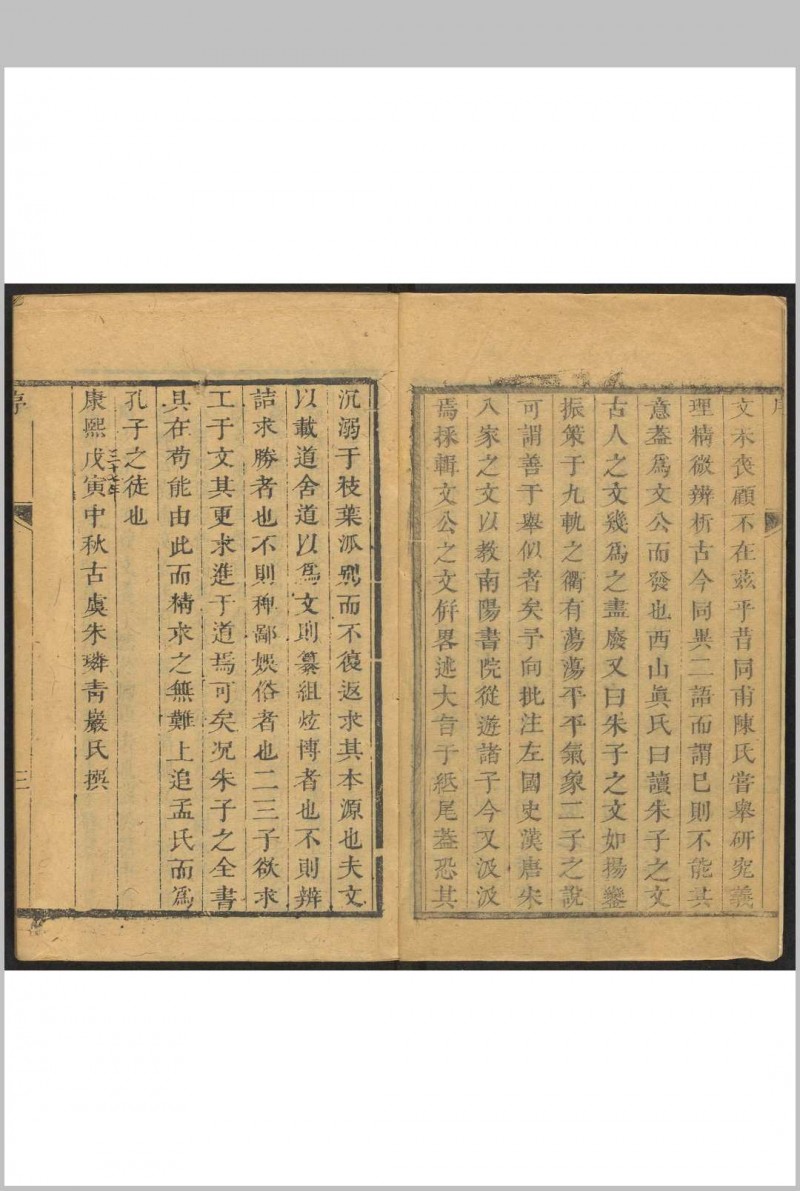 序
文未喪顧不在茲乎昔同甫陳氏嘗舉研究義
理精微辨析古今同異二語而謂已則不能其
意葢爲文公而發也西山眞氏曰讀朱子之文
古人之文幾爲之盡廢又曰朱子之文如揚鑾
振策于九軌之衢有蕩蕩平平氣象二子之說
可謂善于舉似者矣予向批注左國史漢唐朱
八家之文以教南陽書院從遊諸子今又汲汲
焉採輯文公之文併畧述大旨于紙尾葢恐其
沉溺于枝葉派別而不復返求其本源也夫文
以載道舍道以爲文則纂組炫博者也不則辨
詰求勝者也不則稗鄙娛俗者也二三子欲求
工于文其更求進于道焉可矣况朱子之全書
具在苟能由此而精求之無難上追孟氏而爲
孔子之徒也
康熙戊寅三十七年中秋古虞朱璘青巖氏撰
序
三